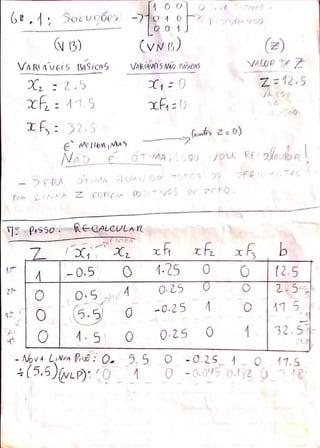 6º.1: SOLUÇÕES
1 0 0
0 1 0
0 0 1
(VB) (VNB) (Z)
VARIÁVEIS BÁSICAS VARIÁVEIS NÃO BÁSICAS VALOR DE Z
X₂ = 2.5 X₁ = 0 Z = 12.5
xF₂ = 17.5 xF₁ = 0
xF₃ = 32.5
É MELHOR, MAS (antes Z=0)
NÃO É ÓTIMA, LOGO VOU RECALCULAR!
- SERÁ ÓTIMA QUANDO TODOS OS COEFICIENTES
NA LINHA Z FOREM POSITIVOS OU ZERO.
7º PASSO: RECALCULAR
Z X₁ X₂ xF₁ xF₂ xF₃ b
1 -0.5 0 1.25 0 0 12.5
0 0.5 1 0.25 0 0 2.5
0 5.5 0 -0.25 1 0 17.5
0 1.5 0 0.25 0 1 32.5
- NOVA LINHA PIVÔ: 0 5.5 0 -0.25 1 0 17.5
÷(5.5)(NLP): 0 1 0 -0.045 0.182 0 3.18